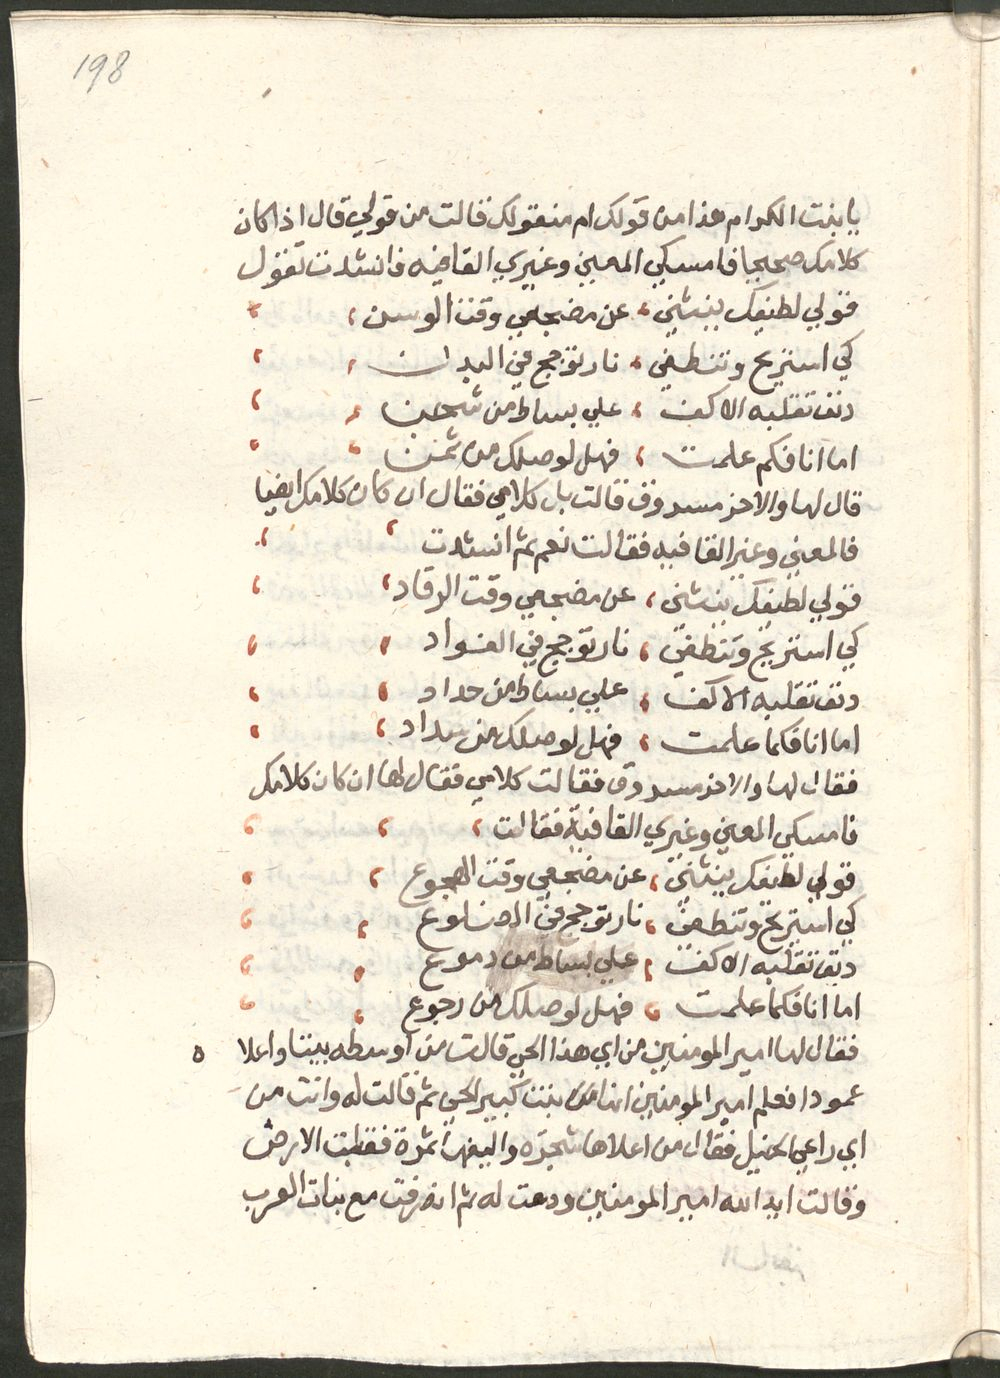 198
يا بنت الكرام هذا من قولك ام منقولك قالت من قولي قال اذا كان
كلامك صحيحا فامسكي المعني وغيري القافيه فانشدت تقول
قولي لطيفك ينثني ، عن مضجعي وقت الوسن ،
كي استريح وتنطفي ، نار توجج في البدن ،
دنف تقلبه الاكف ، علي بساط من شجن ،
اما انا فكم علمت ، فهل لوصلك من ثمن
قال لها والاخر مسروق قالت بل كلامي فقال ان كان كلامك ايضا
فالمعني وغير القافيه فقالت نعم ثم انشدت
قولي لطيفك ينثني ، عن مضجعي وقت الرقاد ،
كي استريح وتنطفي ، نار توجج في الفواد ،
دنف تقلبه الاكف ، علي بساط من حداد ،
اما انا فكما علمت ، فهل لوصلك من سداد ،
فقال لها والاخر مسروق فقالت كلامي فقال لها ان كان كلامك
فامسكي المعني وغيري القافية فقالت ،
قولي لطيفك ينثني ، عن مضجعي وقت الهجوع ،
كي استريح وتنطفي ، نار توجج في الضلوع ،
دنف تقلبه الاكف ، علي بساط من دموع ،
اما انا فكما علمت ، فهل لوصلك من رجوع ،
فقال لها امير المومنين من اي هذا الحي قالت من اوسطه بيتا واعلا ه
عمودا فعلم امير المومنين انها من بنت كبير الحي ثم قالت له وانت من
اي راعي الخيل فقال من اعلاها شجره واليفها ثمرة فقبلت الارض
وقالت ايد الله امير المومنين ودعت له ثم انصرفت مع بنات العرب